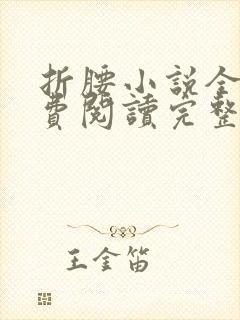 折腰小说全
費閱讀完整
王金笛